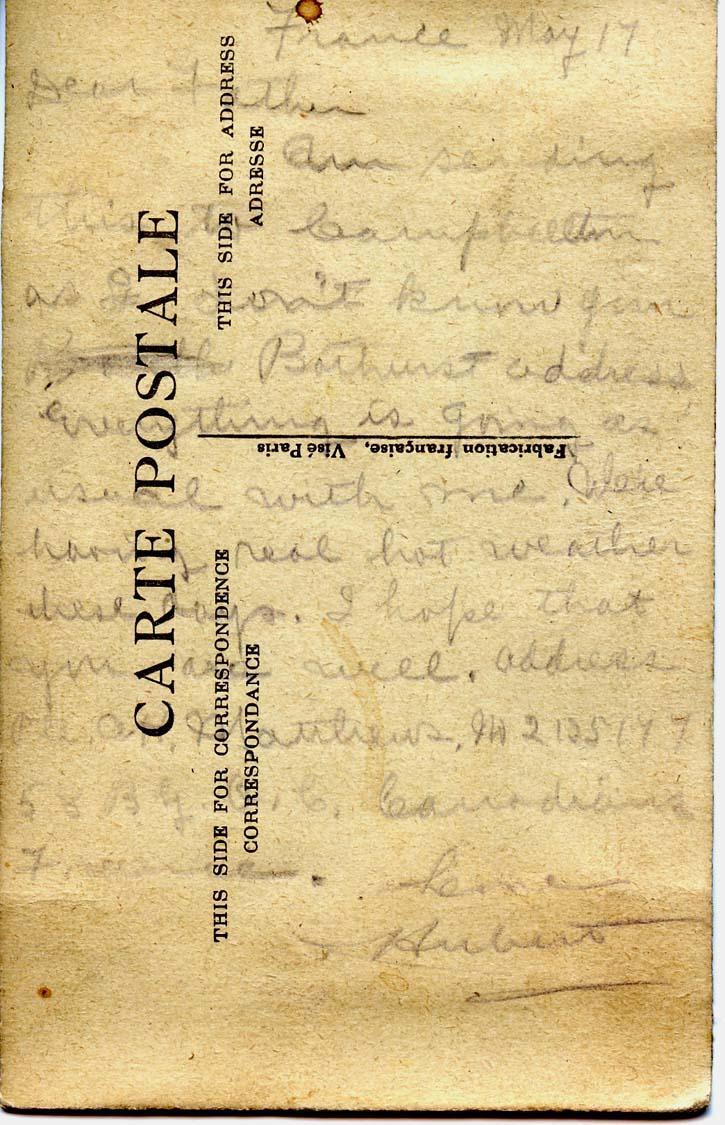 France May 17
Dear Father
Am sending
this to Campbellton
as I don't know your
Bathurst address
everything is going as
usual with me. We're
having real hot weather
these days. I hope that
you are well. Address
Pte. A. H. Matthews,
Canadians
France.
Love
Hubert
CARTE POSTALE
THIS SIDE FOR CORRESPONDENCE
CORRESPONDANCE
THIS SIDE FOR ADDRESS
ADRESSE
Fabrication française, Visé Paris